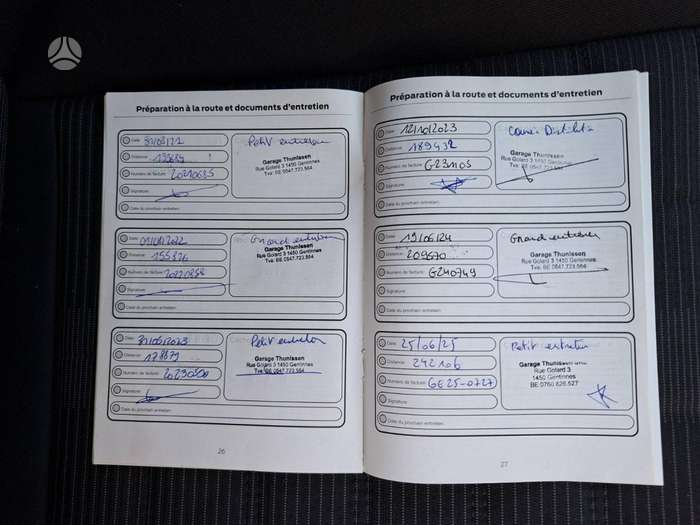 Préparation à la route et documents d'entretien
Date 31/08/21
Distance
Numéro de facture 20210685
Signature
Date du prochain entretien
Petit entretien
Garage Thunissen
Rue Golard 3 1450 Gentinnes
Tva: BE 0847.723.564
Date
Distance 155826
Numéro de facture
Signature
Date du prochain entretien
Grand entretien
Garage Thunissen
Rue Golard 3 1450 Gentinnes
Tva: BE 0847.723.564
Date 31/05/2023
Distance 178879
Numéro de facture
Signature
Date du prochain entretien
Petit entretien
Garage Thunissen
Rue Golard 3 1450 Gentinnes
Tva: BE 0847.723.564
26
Préparation à la route et documents d'entretien
Date 12/10/2023
Distance 189432
Numéro de facture G231105
Signature
Date du prochain entretien
Courroie Distribution
Garage Thunissen
Rue Golard 3 1450 Gentinnes
Tva: BE 0847.723.564
Date 19/06/24
Distance 209570
Numéro de facture G240749
Signature
Date du prochain entretien
Grand entretien
Garage Thunissen
Rue Golard 3 1450 Gentinnes
Tva: BE 0847.723.564
Date 25/06/25
Distance 242106
Numéro de facture GE25-0727
Signature
Date du prochain entretien
Petit entretien
Garage Thunissen
Rue Golard 3
1450 Gentinnes
BE 0760 826.527
27